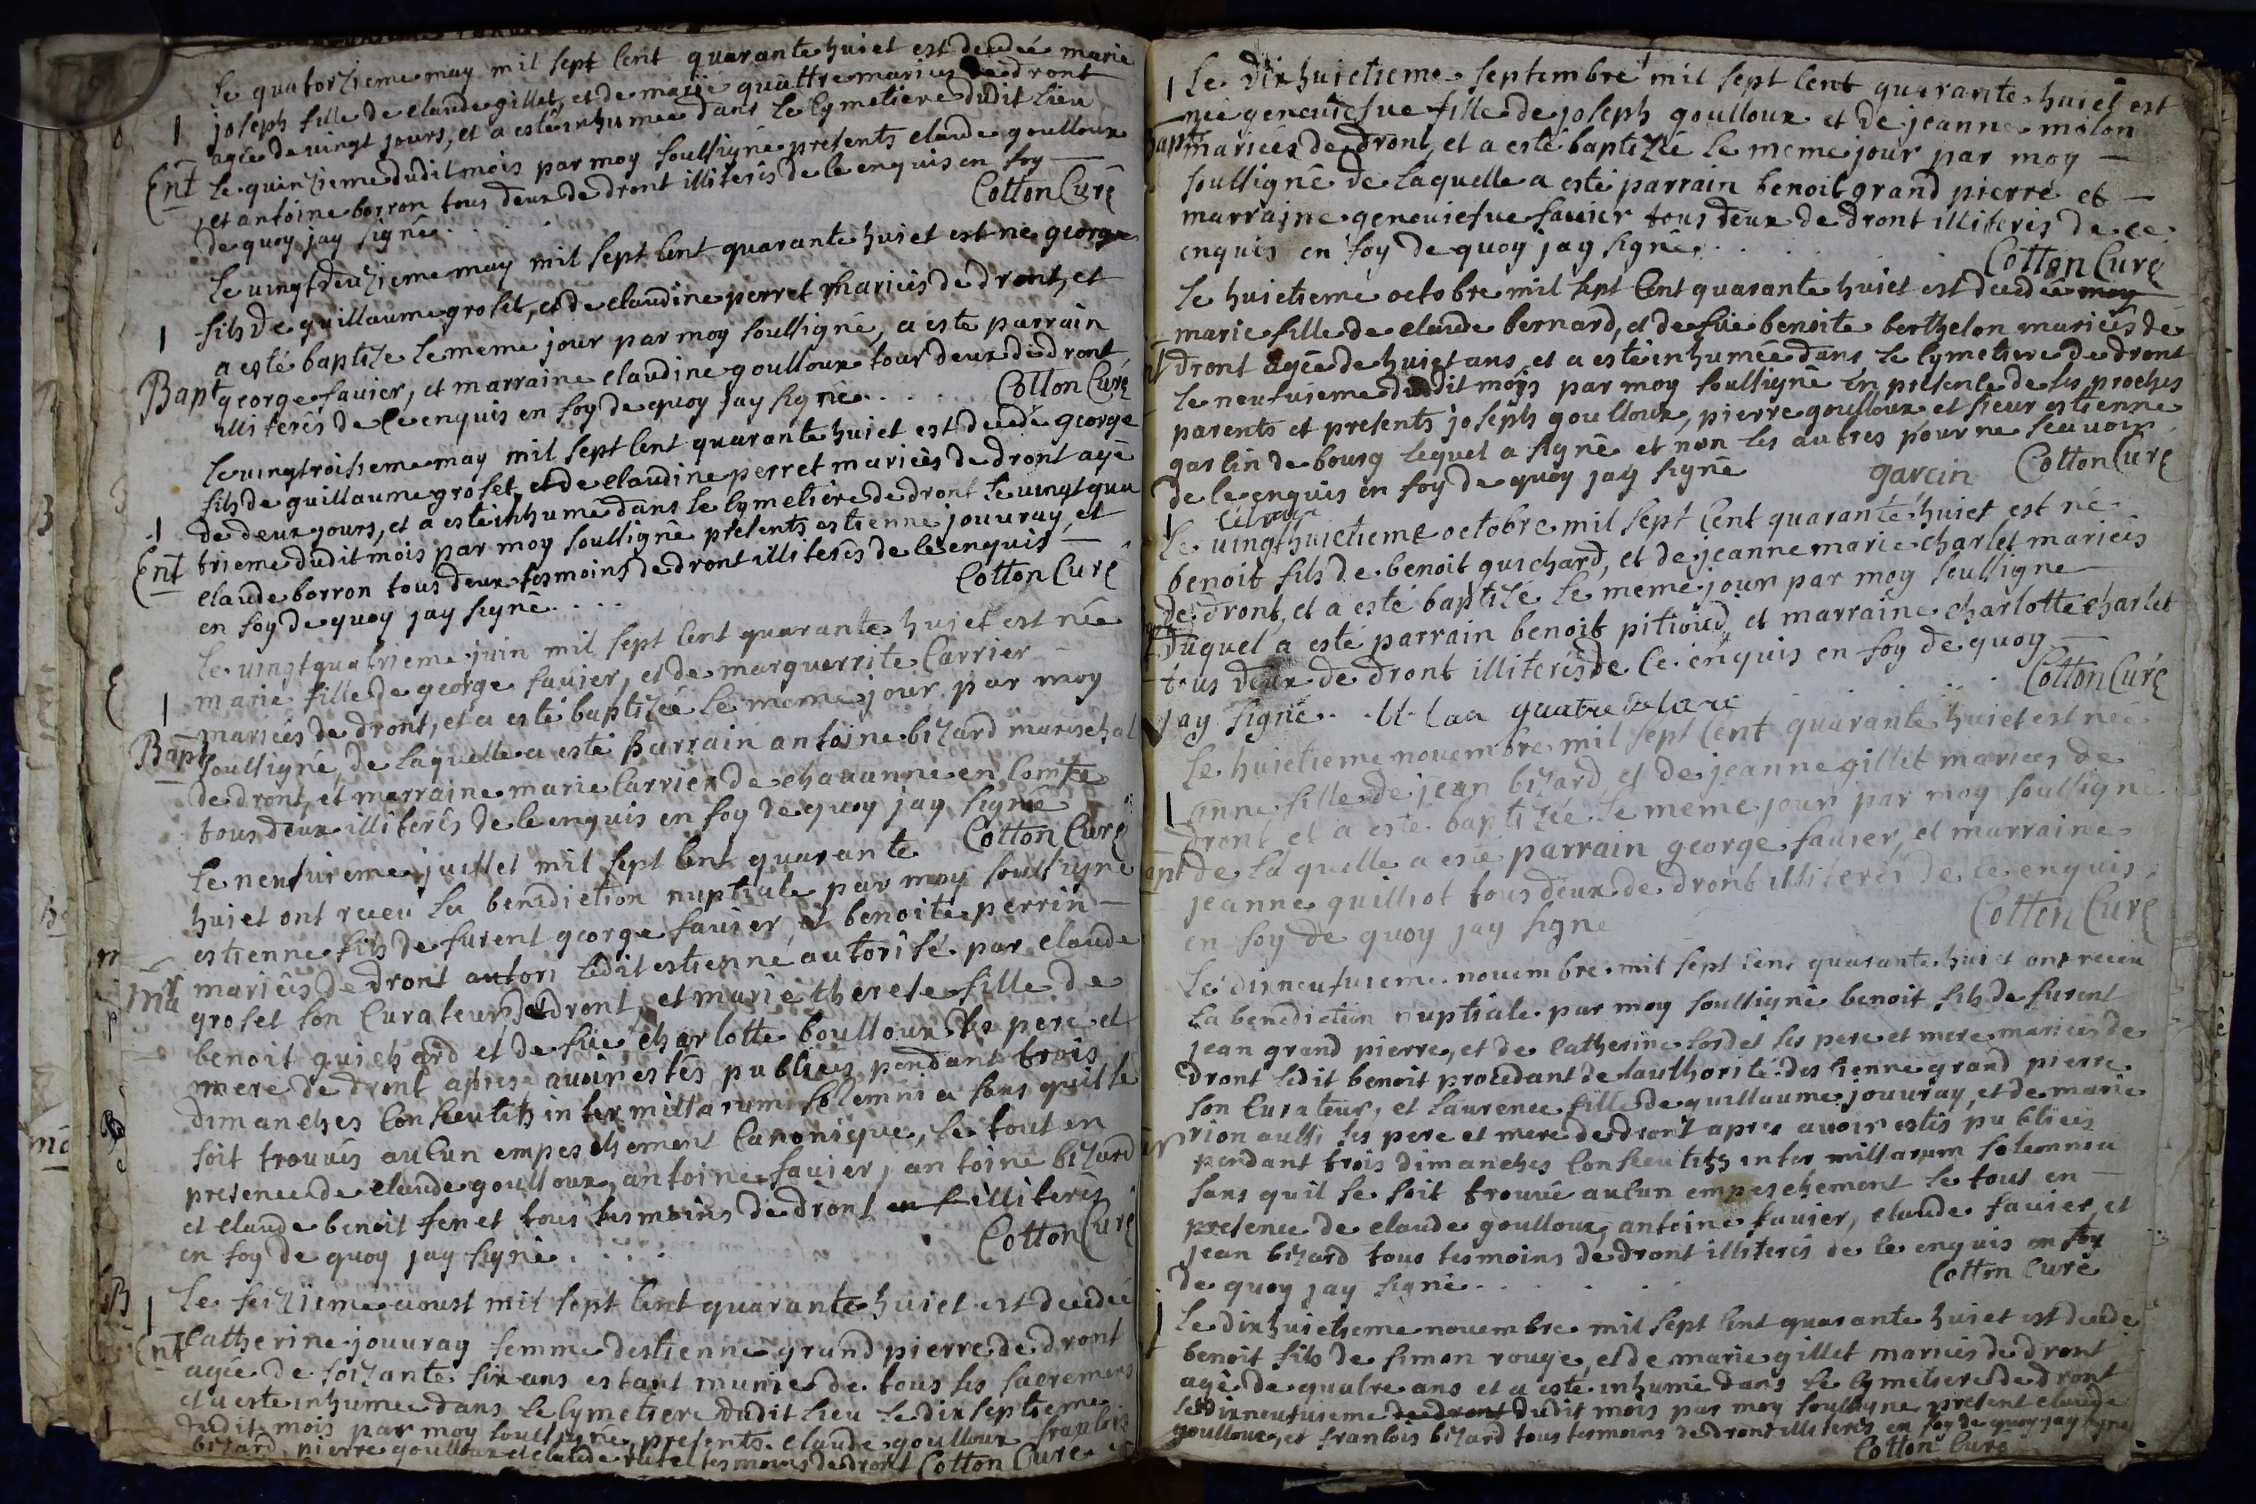 Le quatorzieme may mil sept cent quarante huict est decedée marie
joseph fille de claude gillet, et de marie quattre mariees de dront
agée de vingt jours, et a esté inhumée dans le cymetiere dudit lieu
Ent le quinzieme dudit mois par moy soussigné presents claude goulloux
et antoine borron tous deux de dront illiterés de ce enquis en foy
de quoy jay signé. Cotton Curé
Le vingtdeuzieme may mil sept cent quarante huict est né george
fils de guillaume groset, et de claudine perret mariés de dront, et
a esté baptizé le meme jour par moy soussigné, a esté parrain
Bapt george favier, et marraine claudine goulloux tour deux de dront
illiterés de ce enquis en foy de quoy jay signé. Cotton Curé
Le vingtroisieme may mil sept cent quarante huict est decedé george
fils de guillaume groset, et de claudine perret mariés de dront agé
de deux jours, et a esté inhumé dans le cymetiere de dront le vingt qua
Ent trieme dudit mois par moy soussigné presents estienne jouuray, et
claude borron tous deux tesmoins de dront illiterés de ce enquis
en foy de quoy jay signé. Cotton Curé
Le vingtquatrieme juin mil sept cent quarante huict est née
marie fille de george favier, et de marguerrite Carrier
mariés de dront, et a esté baptizée le meme jour par moy
Bapt soussigné, de laquelle a esté parrain antoine bizard mareschal
de dront, et marraine marie Carrier de chavanne en Comté
tous deux illiterés de ce enquis en foy de quoy jay signé
Cotton Curé
Le neufuieme juillet mil sept cent quarante
huict ont receu la benediction nuptiale par moy soussigné
estienne fils de furent george favier, et benoite perrin
mariés de dront autori ledit estienne autorisé par claude
Mar groset son Curateur de dront, et marie therese fille de
benoit guichard et de füe charlotte boulloux ses pere et
mere de dront apres avoir estés publiées pendant trois
dimanches Consecutifs inter missarum solemnia sans quil se
soit trouvés aucun empeschement Canonique, le tout en
presence de claude goulloux, antoine favier, antoine bizard
et claude benoit fenet tous tesmoins de dront illiterés
en foy de quoy jay signé. Cotton Curé
Le seizieme aoust mil sept cent quarante huict est decedée
Ent Catherine jouuray femme destienne grand pierre de dront
agée de soizante six ans estant munie de tous les sacremens
et a esté inhumée dans le cymetiere dudit lieu le dixseptieme
dudit mois par moy soussigné, presents claude goulloux francois
bizard, pierre goulloux et claude tesmoins de dront Cotton Curé
Le dixhuictieme septembre mil sept cent quarante huict est
née geneuiefue fille de joseph goulloux et de jeanne milon
Bapt mariés de dront, et a esté baptizée le meme jour par moy
soussigné de laquelle a esté parrain benoit grand pierre et
marraine geneuiefue favier tous deux de dront illiterés de ce
enquis en foy de quoy jay signé. Cotton Curé
Le huictieme octobre mil sept cent quarante huict est decedée may
marie fille de claude bernard, et de füe benoite berthelon mariés de
dront agée de huict ans, et a esté inhumée dans le cymetiere de dront
le neufuieme dudit mois par moy soussigné en presence de ses proches
parents et presents joseph goulloux, pierre goulloux et sieur estienne
garcin de bourg lequel a signé et non les autres pour ne sçavoir
de ce enquis en foy de quoy jay signé garcin Cotton Curé
Le vingthuictieme octobre mil sept cent quarante huict est né
benoit fils de benoit guichard, et de jeanne marie charlet mariés
de dront, et a esté baptizé le meme jour par moy soussigné
duquel a esté parrain benoit pitioud, et marraine charlotte charlet
tous deux de dront illiterés de ce enquis en foy de quoy
jay signé. Cotton Curé
Le huictieme novembre mil sept cent quarante huict est née
anne fille de jean bizard, et de jeanne gillet mariees de
dront et a esté baptizée le meme jour par moy soussigné
de laquelle a esté parrain george favier, et marraine
jeanne guilliot tous deux de dront illiterés de ce enquis
en foy de quoy jay signé Cotton Curé
Le dixneufuieme novembre mil sept cent quarante huict ont receu
la benediction nuptiale par moy soussigné benoit fils de furent
jean grand pierre, et de Catherine Cordet ses pere et mere mariés de
dront ledit benoit procedant de lauthorité destienne grand pierre
son Curateur, et laurence fille de guillaume jouuray, et de marie
rion aussi ses pere et mere de dront apres avoir estés publiées
pendant trois dimanches Consecutifs inter missarum solemnia
sans quil se soit trouvé aucun empeschement le tout en
presence de claude goulloux, antoine favier, claude favier, et
jean bizard tous tesmoins de dront illiterés de ce enquis en foy
de quoy jay signé. Cotton Curé
Le dixhuictieme novembre mil sept cent quarante huict est decedé
benoit fils de simon rouge, et de marie gillet mariés de dront
agé de quatre ans et a esté inhumé dans le cymetiere de dront
le dixneufuieme de dront dudit mois par moy soussigné present claude
goulloux, et francois bizard tous tesmoins de dront illiterés, en foy de quoy jay signé
Cotton Curé